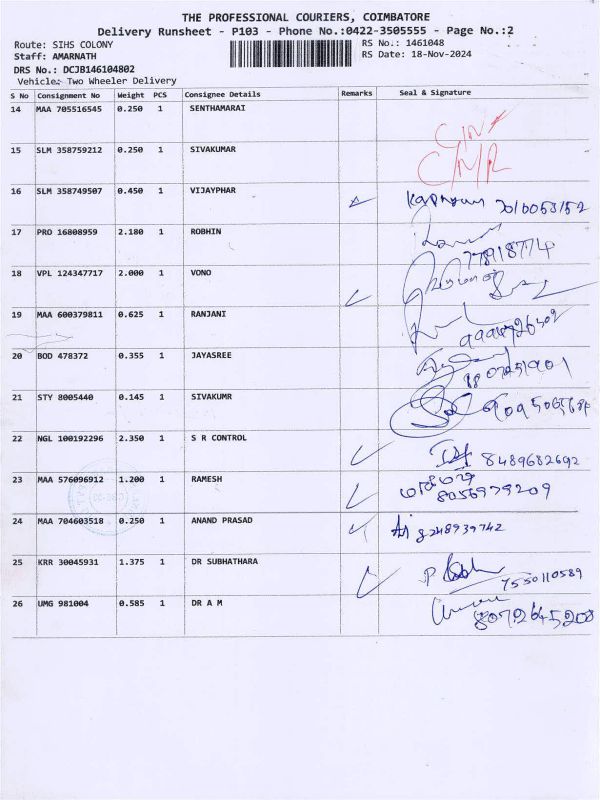 THE PROFESSIONAL COURIERS, COIMBATORE
Delivery Runsheet - P103 - Phone No.:0422-3505555 - Page No.:2
Route: SIHS COLONY
RS No.: 1461048
Staff: AMARNATH
RS Date: 18-Nov-2024
DRS No.: DCJB146104802
Vehicle: Two Wheeler Delivery
S No Consignment No Weight PCS Consignee Details Remarks Seal & Signature
14 MAA 705516545 0.250 1 SENTHAMARAI
15 SLM 358759212 0.250 1 SIVAKUMAR
16 SLM 358749507 0.450 1 VIJAYPHAR
17 PRO 16808959 2.180 1 ROBHIN
18 VPL 124347717 2.000 1 VONO
19 MAA 600379811 0.625 1 RANJANI
20 BOD 478372 0.355 1 JAYASREE
21 STY 8005440 0.145 1 SIVAKUMR
22 NGL 100192296 2.350 1 S R CONTROL 8489682692
23 MAA 576096912 1.200 1 RAMESH 8056979209
24 MAA 704603518 0.250 1 ANAND PRASAD 8248939742
25 KRR 30045931 1.375 1 DR SUBHATHARA 7550110589
26 UMG 981004 0.585 1 DR A M 8072645208